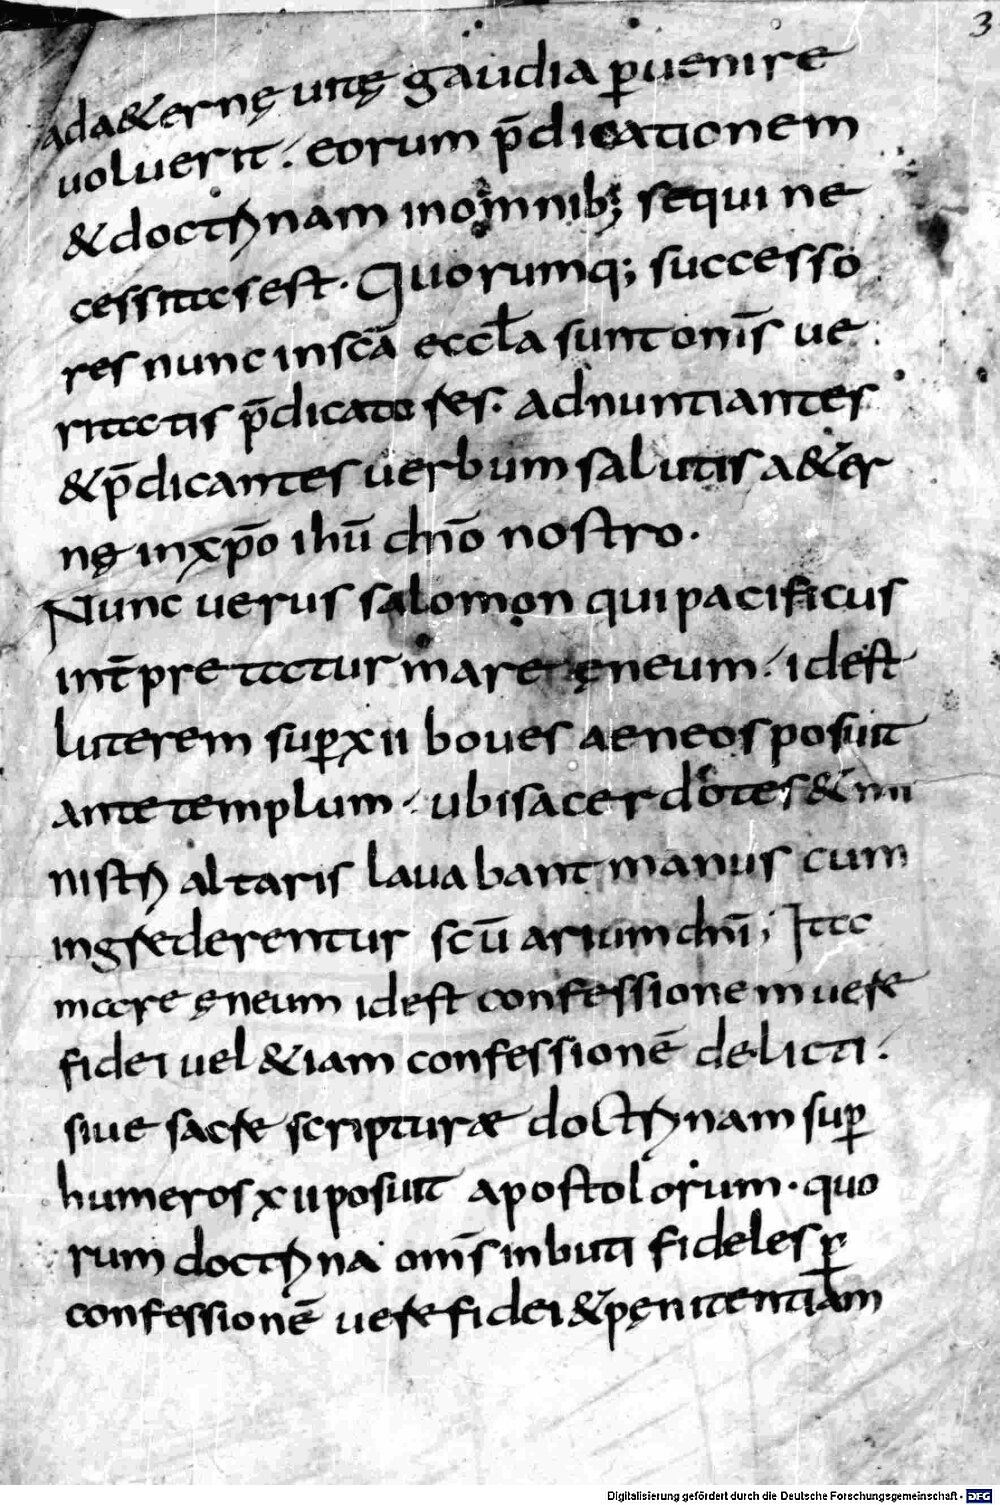 3
ada&ernę uitę gaudia ꝑuenire
uoluerit. eorum p̄dicationem
&doctrinam inomnib; sequi ne
cessitas est. Quorumq; successo
res nunc insc̄a eccl̄a sunt om̄s ue
ritatis p̄dicatores. adnuntiantes
&p̄dicantes uerbum salutis a&er
nę inxp̄o ihū dn̄o nostro.
Nunc uerus salomon qui pacificus
int̄pretatur mare ęneum. idest
luterem suꝑxii boues aeneos posuit
ante templum. ubi sacerdotes &mi
nistri altaris lauabant manus cum
ingrederentur sc̄uarium dn̄i; Ita
mare ęneum idest confessionem uere
fidei uel &iam confessionē delicti.
siue sacre scripturæ doctrinam suꝑ
humeros xii posuit apostolorum. quo
rum doctrina om̄s inbuti fideles ꝑ
confessionē uere fidei &pęnitentiam
Digitalisierung gefördert durch die Deutsche Forschungsgemeinschaft - DFG